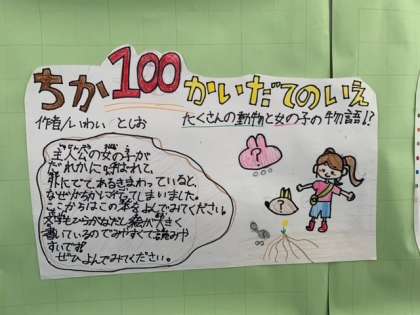 ちか100かいだてのいえ
作者/いわい としお
たくさんの動物と女の子の物語!?
主人公の女の子が
だれかに呼ばれて、
外にでて、あるきまわっていると、
なぜか
ここからはこの本をよんでみてください。
文字もひらがなだし絵が大きく
書いているのでみやすくて読みや
すいです。
ぜひよんでみてください。
?
?